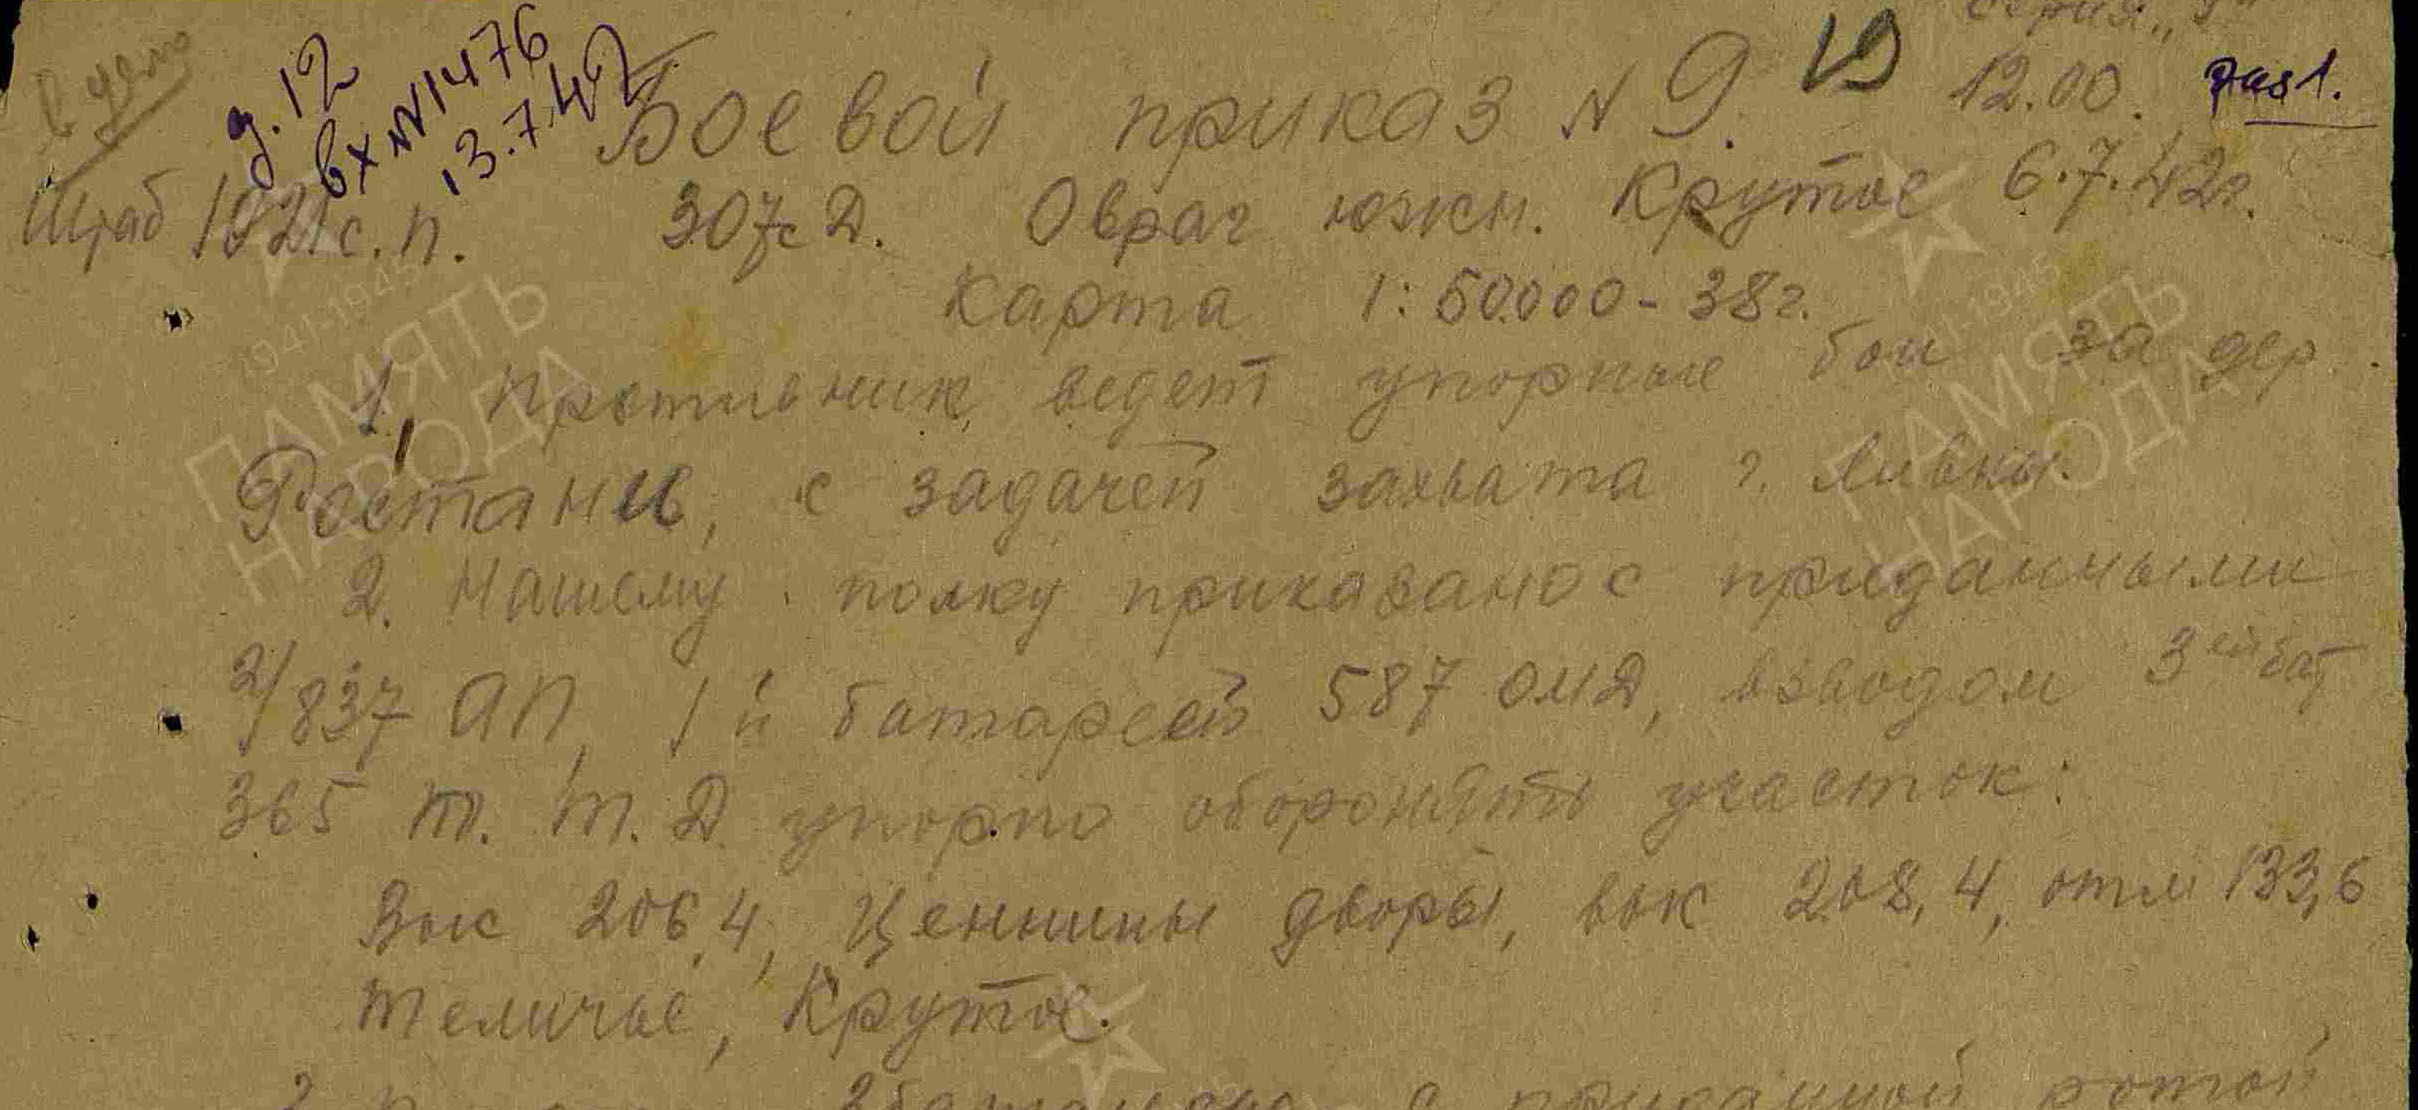 Серия „
В дело
д. 12
вх №1476
13.7.42
Боевой приказ №9. 19 12.00.
Штаб 1021 с.п. 307сД. Овраг южн. Крутое 6.7.42г.
Карта 1:50.000-38г.
1. Противник ведет упорные бои за дер.
Ростани, с задачей захвата г. Ливны.
2. Нашему полку приказано с приданными
2/837 АП, 1й батареей 587 ОМД, взводом 3ей бат
365 т.т.Д упорно оборонять участок:
Выс 206,4, Ценнины дворы, выс 208,4, отм 133,6
Теличье, Крутое.
с приданной ротой
1941-1945
ПАМЯТЬ
НАРОДА
1941-1945
ПАМЯТЬ
НАРОДА